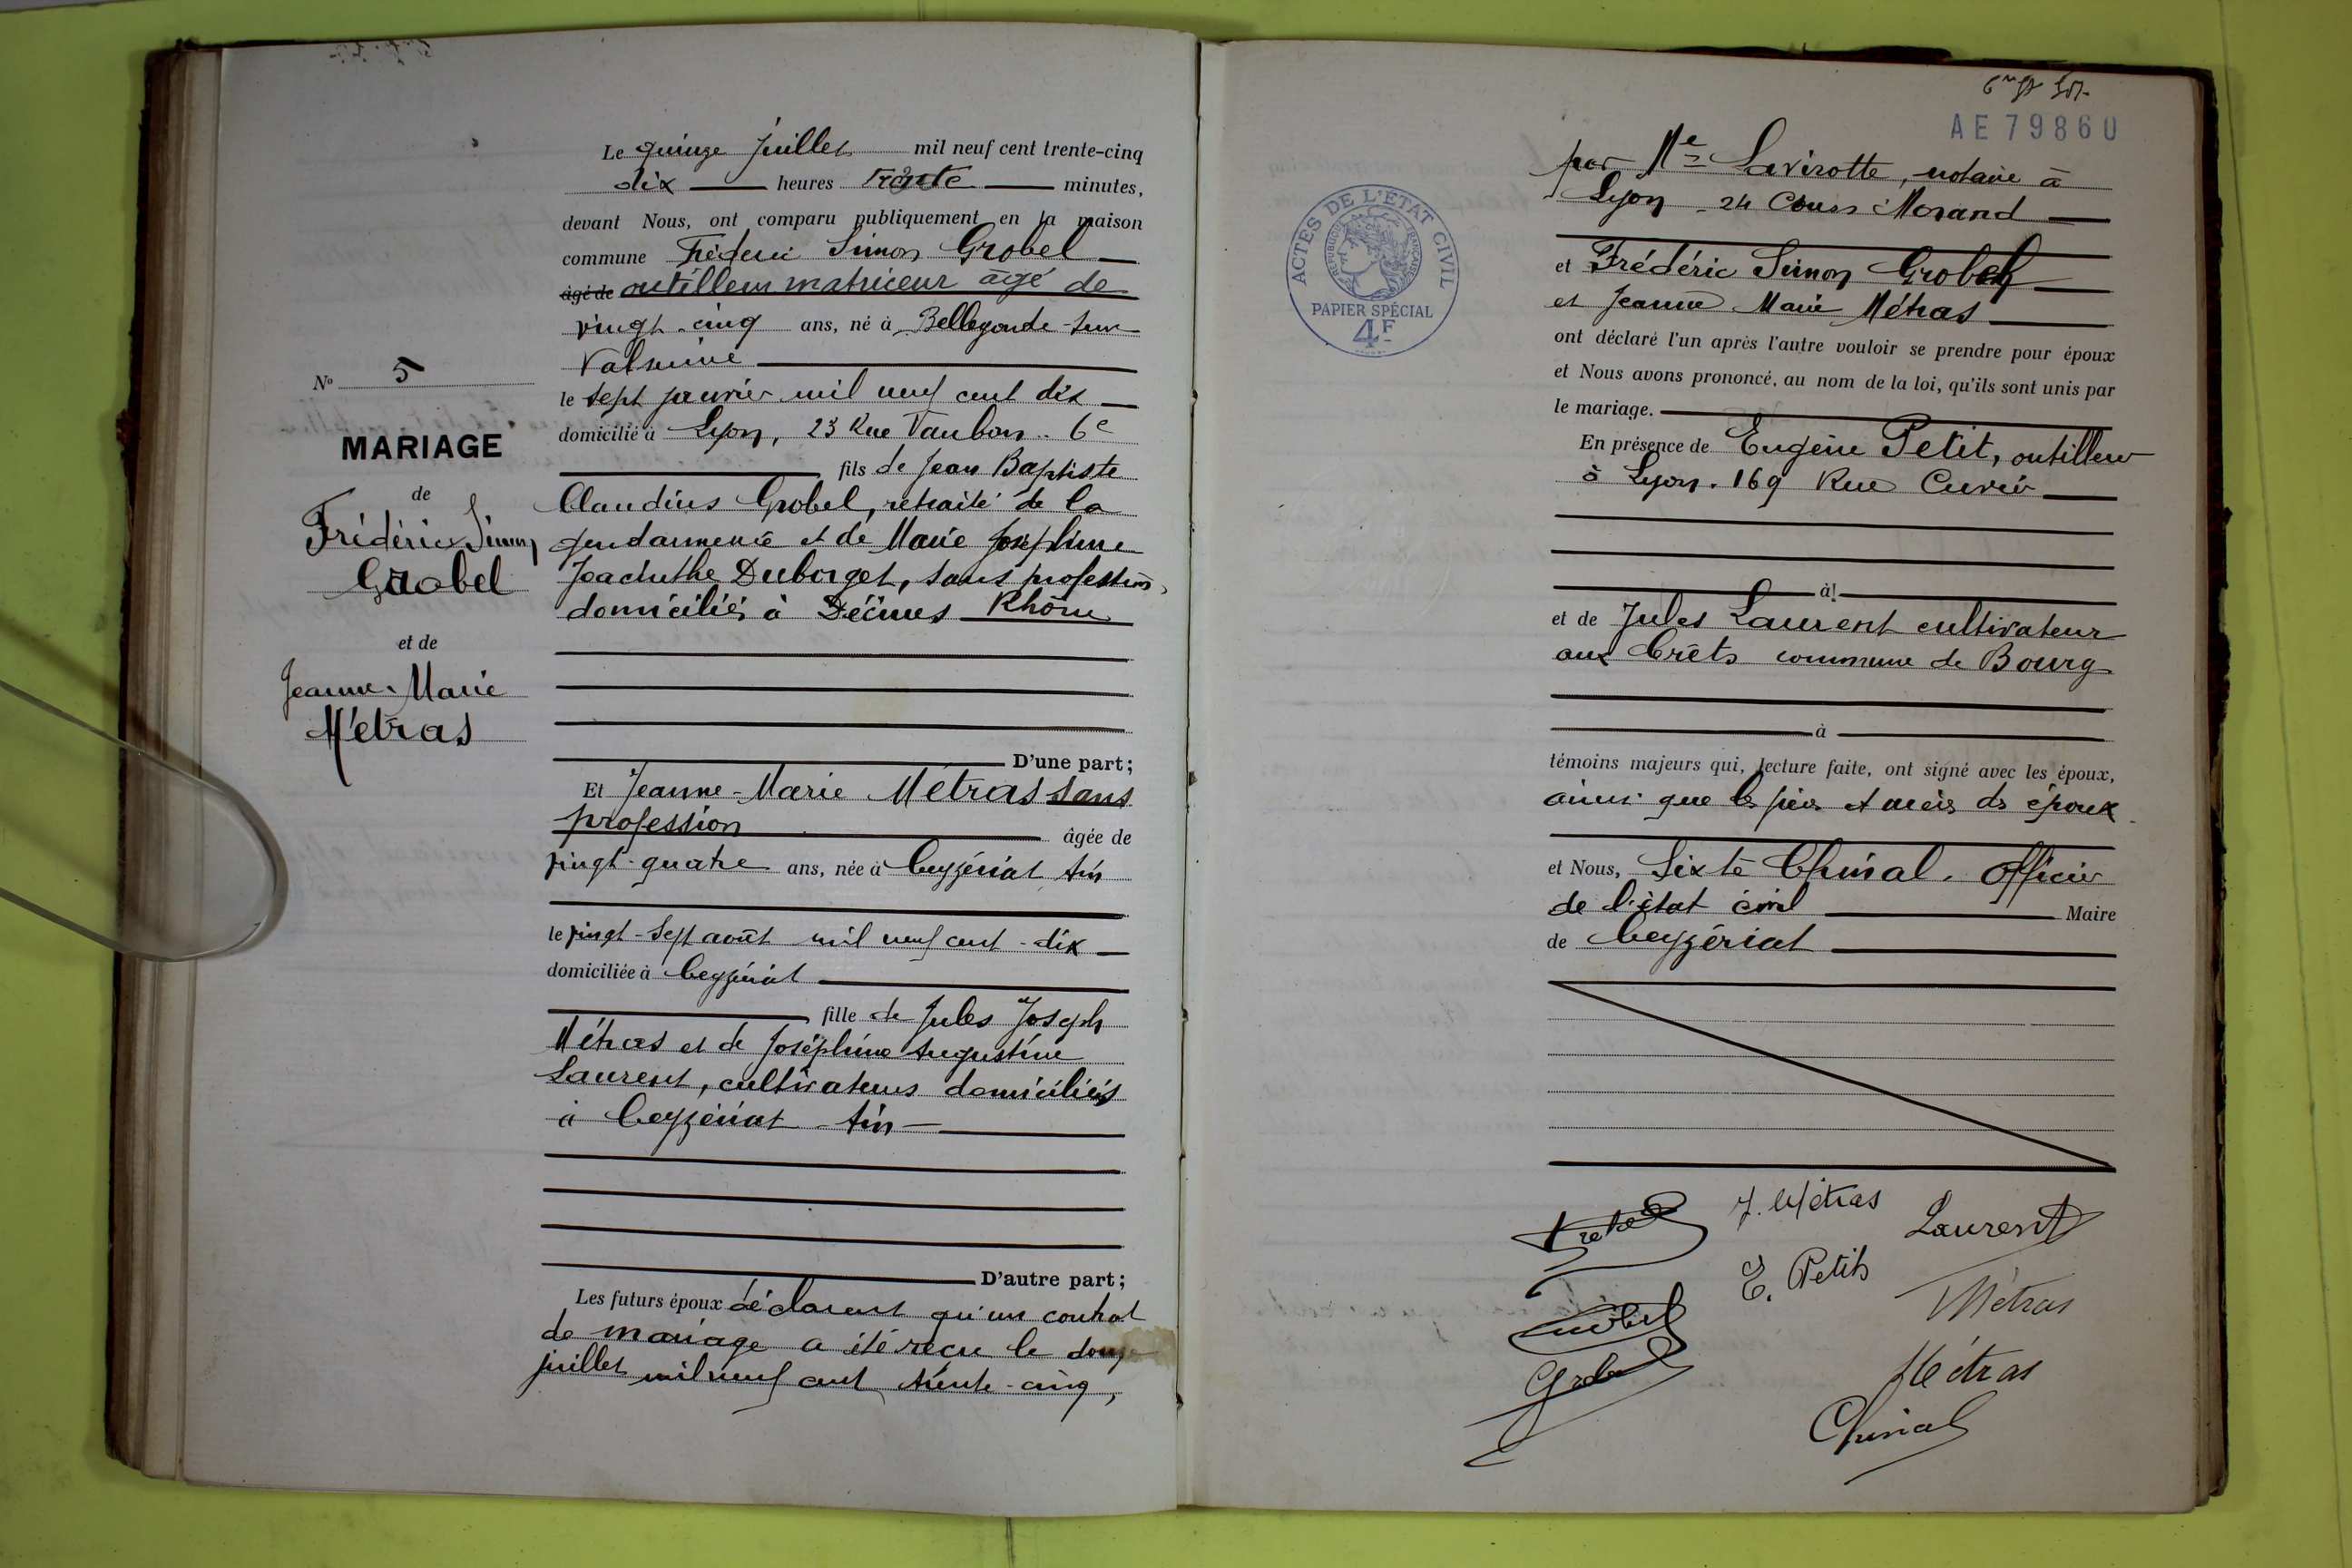 N° 5
MARIAGE
de
Frédéric Simon
Grobel
et de
Jeanne-Marie
Métras
Le quinze Juillet mil neuf cent trente-cinq
dix heures Trente minutes,
devant Nous, ont comparu publiquement en la maison
commune Fréderic Simon Grobel
âgé de outilleur matriceur âgé de
vingt-cinq ans, né à Bellegarde sur
Valserine
le sept janvier mil neuf cent dix
domicilié à Lyon, 23 Rue Vauban. 6e
fils de Jean Baptiste
Claudius Grobel, retraité de la
gendarmerie et de Marie Joséphine
Jeacinthe Duborget, sans profession,
domiciliés à Décines Rhône
D'une part;
Et Jeanne-Marie Métras sans
profession âgée de
vingt-quatre ans, née à Ceyzériat Ain
le vingt-sept août mil neuf cent-dix
domiciliée à Ceyzériat
fille de Jules Joseph
Métras et de Joséphine Augustine
Laurent, cultivateurs domiciliés
à Ceyzériat - Ain -
D'autre part;
Les futurs époux déclarent qu'un contrat
de mariage a été reçu le douze
juillet mil neuf cent trente-cinq,
AE 79860
ACTES DE L'ÉTAT CIVIL
RÉPUBLIQUE FRANÇAISE
PAPIER SPÉCIAL
4F
par Me Lavirotte, notaire à
Lyon - 24 Cours Morand
et Frédéric Simon Grobel
et Jeanne Marie Métras
ont déclaré l'un après l'autre vouloir se prendre pour époux
et Nous avons prononcé, au nom de la loi, qu'ils sont unis par
le mariage.
En présence de Eugène Petit, outilleur
à Lyon. 169 Rue Cuvier
à
et de Jules Laurent cultivateur
aux Crêts commune de Bourg
à
témoins majeurs qui, lecture faite, ont signé avec les époux,
ainsi que les père et mère des époux.
et Nous, Sixte Chinal. Officier
de l'état civil Maire
de Ceyzériat
J. Métras
Laurent
E. Petit
Métras
Grobel
Métras
Chinal